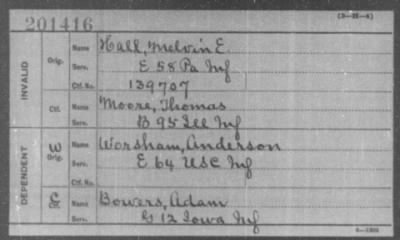 201416
(3-22-4)
INVALID
Orig.
Name Hall, Melvin E.
Serv. E 58 Pa Inf
Ctf. No. 139707
Ctf.
Name Moore, Thomas
Serv. B 95 Ill Inf
DEPENDENT
W
Orig.
Name Worsham, Anderson
Serv. E 64 USC Inf
Ctf. No.
C
Ctf.
Name Bowers, Adam
Serv. G 12 Iowa Inf